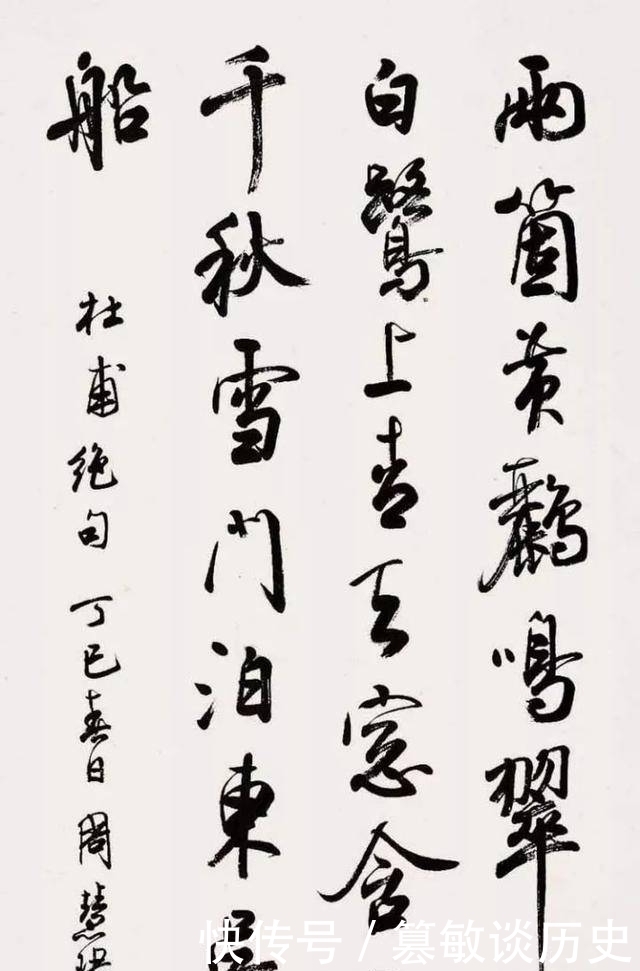 兩箇黃鸝鳴翠
白鷺上青天窓含
千秋雪門泊東吳
船
杜甫絶句 丁巳春日 周慧珺
快传号 / 篡敏谈历史